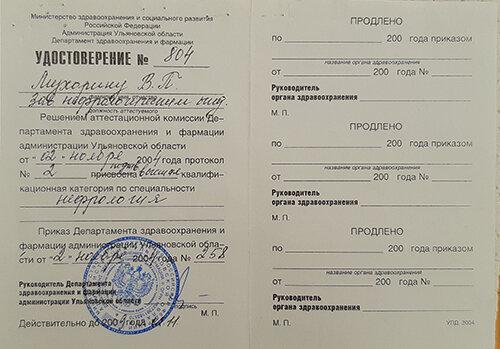 Министерство здравоохранения и социального развития
Российской Федерации
Администрация Ульяновской области
Департамент здравоохранения и фармации
УДОСТОВЕРЕНИЕ № 804
Мухорину В.П.
Зав нефрологическим отд.
должность аттестуемого
Решением аттестационной комиссии Де-
партамента здравоохранения и фармации
администрации Ульяновской области
от -02- ноября 2004 года протокол
№ 2 присвоена высшая квалифи-
кационная категория по специальности
нефрология
Приказ Департамента здравоохранения и
фармации администрации Ульяновской обла-
сти от -2- ноября 2004 года № 258
Руководитель Департамента
здравоохранения и фармации
администрации Ульяновской области
подпись
М. П.
Действительно до 200 года
ПРОДЛЕНО
по 200 года приказом
название органа здравоохранения
от 200 года №
Руководитель
органа здравоохранения
М. П.
ПРОДЛЕНО
по 200 года приказом
название органа здравоохранения
от 200 года №
Руководитель
органа здравоохранения
М. П.
ПРОДЛЕНО
по 200 года приказом
название органа здравоохранения
от 200 года №
Руководитель
органа здравоохранения
М. П.
УПД. 2004